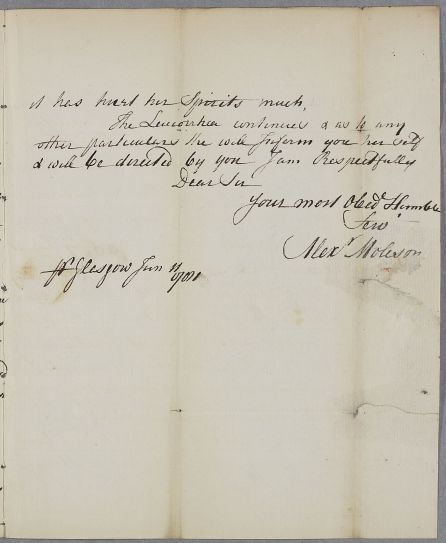 it has hurt her Spirits much,
The Leucorrhea continues & as to any
other particulars She will Inform you her self
& will be directed by you I am Respectfully
Dear Sir
your most Obedt Humble
Servt
Alexr Moleson
Pt Glasgow Jun 11